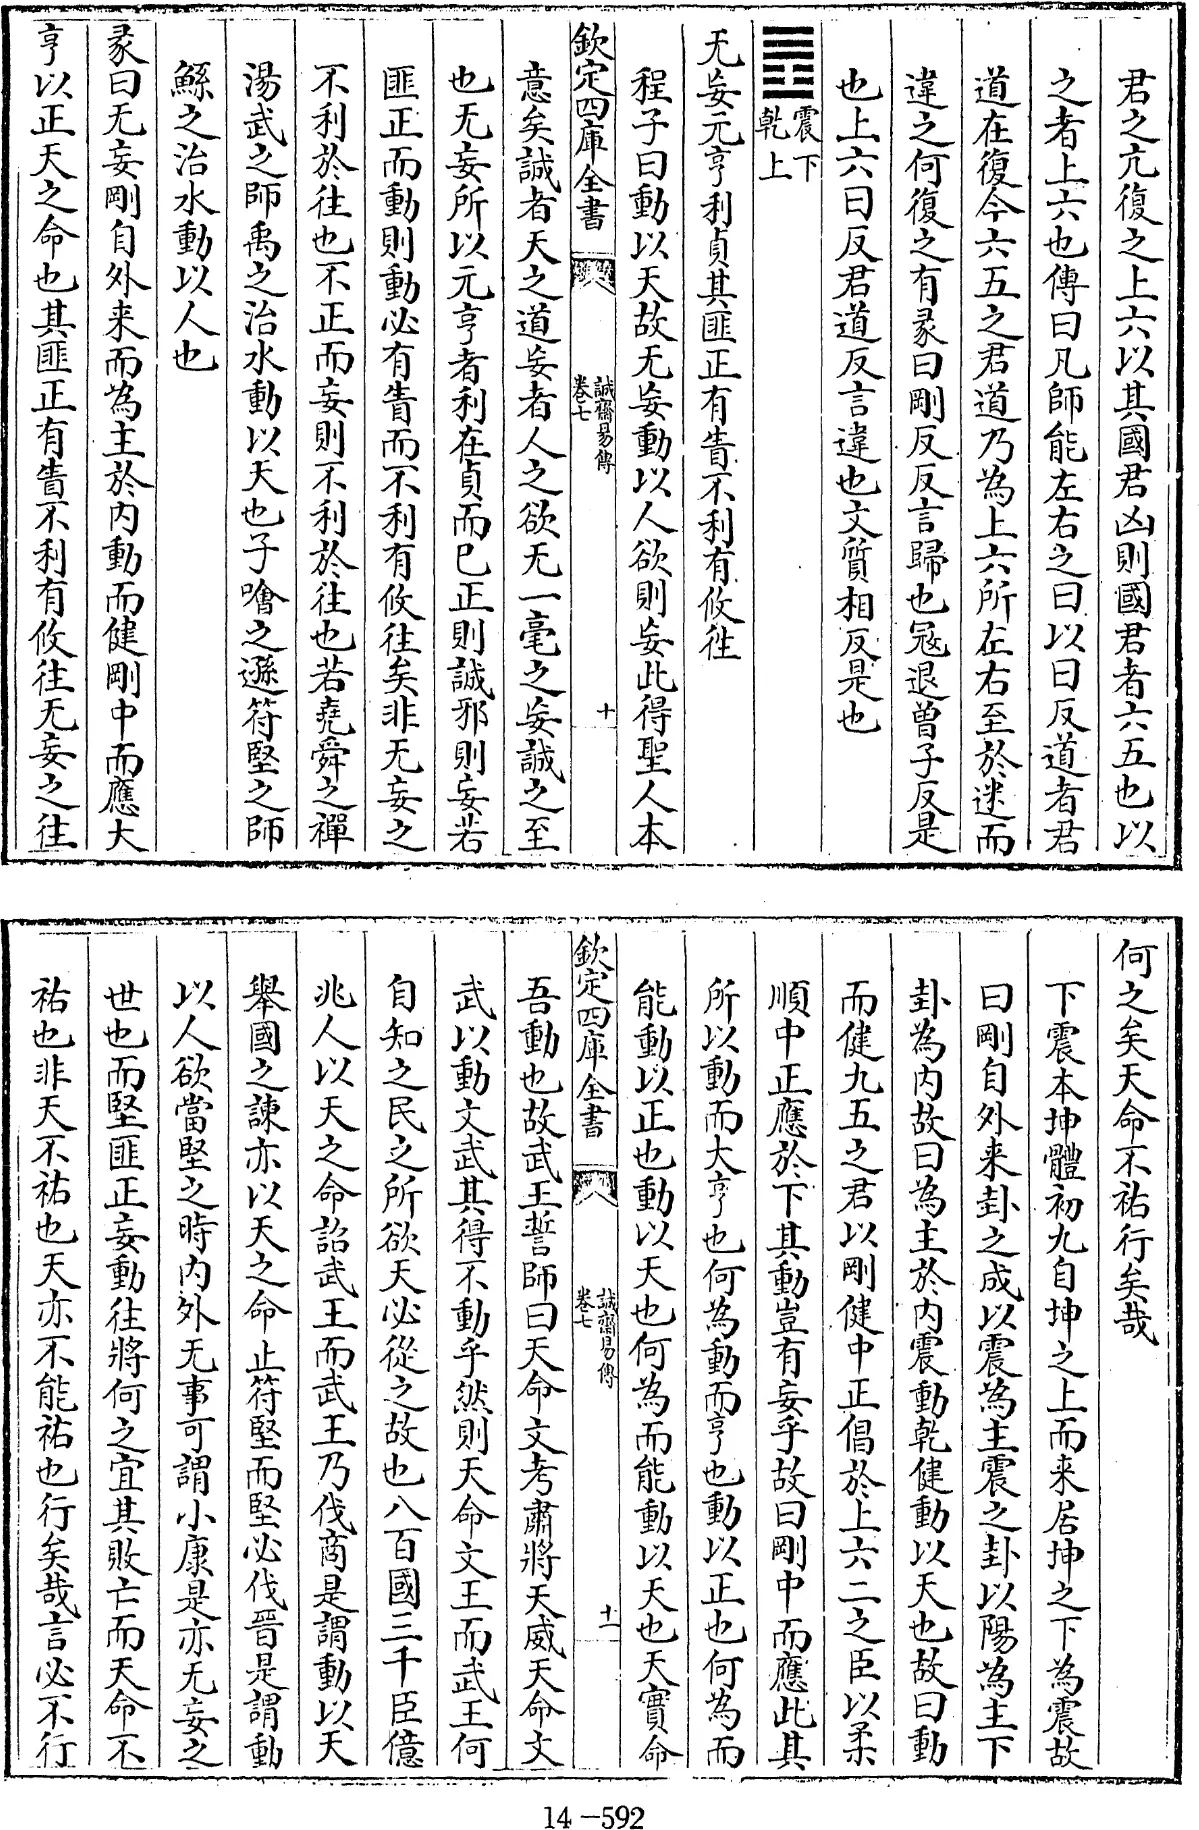 君之亢復之上六以其國君凶則國君者六五也以
之者上六也傳曰凡師能左右之曰以曰反道者君
道在復今六五之君道乃為上六所左右至於迷而
違之何復之有彖曰剛反反言歸也冦退曾子反是
也上六曰反君道反言違也文質相反是也
震下
乾上
无妄元亨利貞其匪正有眚不利有攸徃
程子曰動以天故无妄動以人欲則妄此得聖人本
欽定四庫全書
誠齋易傳
卷七
十
意矣誠者天之道妄者人之欲无一毫之妄誠之至
也无妄所以元亨者利在貞而已正則誠邪則妄若
匪正而動則動必有眚而不利有攸往矣非无妄之
不利於往也不正而妄則不利於往也若堯舜之禪
湯武之師禹之治水動以天也子噲之遜符堅之師
鯀之治水動以人也
彖曰无妄剛自外来而為主於内動而健剛中而應大
亨以正天之命也其匪正有眚不利有攸往无妄之往
何之矣天命不祐行矣哉
下震本坤體初九自坤之上而来居坤之下為震故
曰剛自外来卦之成以震為主震之卦以陽為主下
卦為内故曰為主於内震動乾健動以天也故曰動
而健九五之君以剛健中正倡於上六二之臣以柔
順中正應於下其動豈有妄乎故曰剛中而應此其
所以動而大亨也何為動而亨也動以正也何為而
能動以正也動以天也何為而能動以天也天實命
欽定四庫全書
誠齋易傳
卷七
十一
吾動也故武王誓師曰天命文考肅將天威天命文
武以動文武其得不動乎然則天命文王而武王何
自知之民之所欲天必從之故也八百國三千臣億
兆人以天之命詔武王而武王乃伐商是謂動以天
舉國之諫亦以天之命止符堅而堅必伐晉是謂動
以人欲當堅之時内外无事可謂小康是亦无妄之
世也而堅匪正妄動往將何之宜其敗亡而天命不
祐也非天不祐也天亦不能祐也行矣哉言必不行
14-592